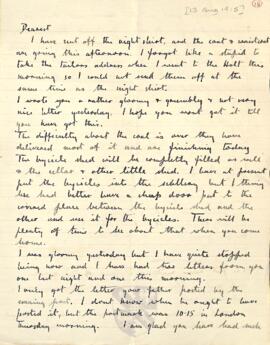 [13 Aug 1915]
Dearest
I have sent off the night shirt, and the coat & waistcoat
are going this afternoon. I forgot like a stupid to
take the Tailors address when I went to the Holt this
morning so I could not send them off at the
same time as the night shirt.
I wrote you a rather gloomy & grumbly & not very
nice letter yesterday. I hope you wont get it till
you have got this.
The difficulty about the coal is over they have
delivered most of it and are finishing today
The bycicle shed will be completly filled as well
as the cellar & other little shed. I have at present
put the bycicles into the scullery but I think
we had better have a cheap door put to the
covered place between the bycicle shed and the
other and use it for the bycicles. There will be
plenty of time to see about that when you come
home.
I was gloomy yesterday but I have quite stopped
being now and I have had two letters from you
one last night and one this morning.
I only got the letter your father posted by the
evening post. I dont know when he ought to have
posted it, but the postmark was 10.15 in London
Thursday morning. I am glad you have had such